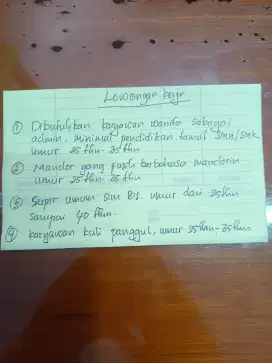 Lowongan kerja
① Dibutuhkan karyawan wanita sebagai
admin. minimal pendidikan tamat SMA/SMK
umur 25 thn - 35 thn
② Mandor yang fasih berbahasa mandarin
umur 25 thn - 35 thn
③ Supir umum sim B1. umur dari 25 thn
sampai 40 thn.
④ Karyawan kuli panggul, umur 25 thn - 35 thn